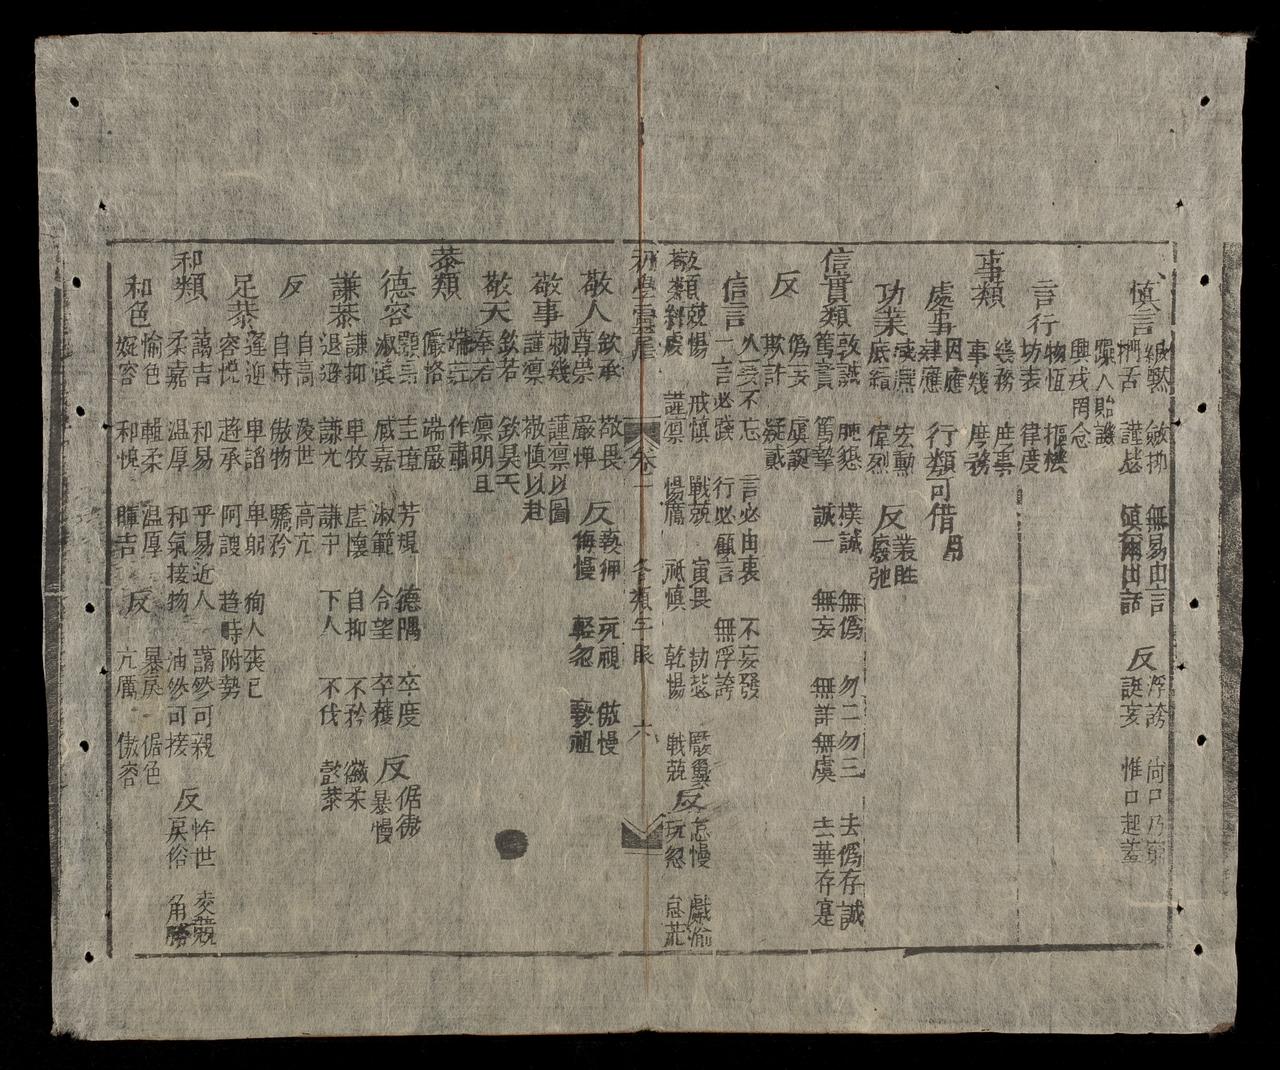 慎言 緘默 斂抑 無易由言 反 浮誇 尚口乃窮
捫舌 謹毖 慎爾出話 誕妄 惟口起羞
躁人貽譏
興戎罔念
言行 物恆 樞機
坊表 律度
事類 幾務 庶事
事幾 庶務
處事 因應 行類可借用
肆應
功業 咸熙 宏勳 反 叢脞
底績 偉烈 廢弛
信實類 敦誠 肫懇 樸誠 無偽 勿二勿三 去偽存誠
篤實 篤摯 誠一 無妄 無詐無虞 去華存寔
反 偽妄 虞詐
欺詐 疑貳
信言 久要不忘 言必由衷 不妄發
一言必踐 行必顧言 無浮誇
敬類 兢惕 戒慎 戰兢 寅畏 劼毖 嚴翼 反 怠慢 戲渝
謹凜 惕厲 祗慎 乾惕 戰兢 玩忽
初學靈犀
卷一 各類字眼 六
敬人 欽承 敬畏 反 褻狎 玩視 傲慢
尊崇 嚴憚 侮慢 輕忽 褻祖
敬事 勅幾 謹凜以圖
謹凜 敬慎以赴
敬天 欽若 欽昊天
奉若 凜明旦
恭類 端莊 作肅
嚴恪 端嚴
德容 顒昂 圭璋 芳規 德隅 卒度 反 倨傲
淑慎 咸嘉 淑範 令望 卒獲 暴慢
謙恭 謙抑 卑牧 虛懷 自抑 不矜 徽柔
退遜 謙光 謙守 下人 不伐 懿恭
反 自高 凌世 高亢
自恃 傲物 驕矜
足恭 逢迎 卑諂 卑躬 狥人喪己
容悅 將承 阿諛 趨時附勢
和類 藹吉 和易 平易近人 藹然可親 反 忤世 交競
柔嘉 温厚 和氣接物 油然可接 戾俗 角勝
和色 愉色 輯柔 温厚 反 暴戾 倨色
婉容 和悅 暉吉 亢厲 傲容